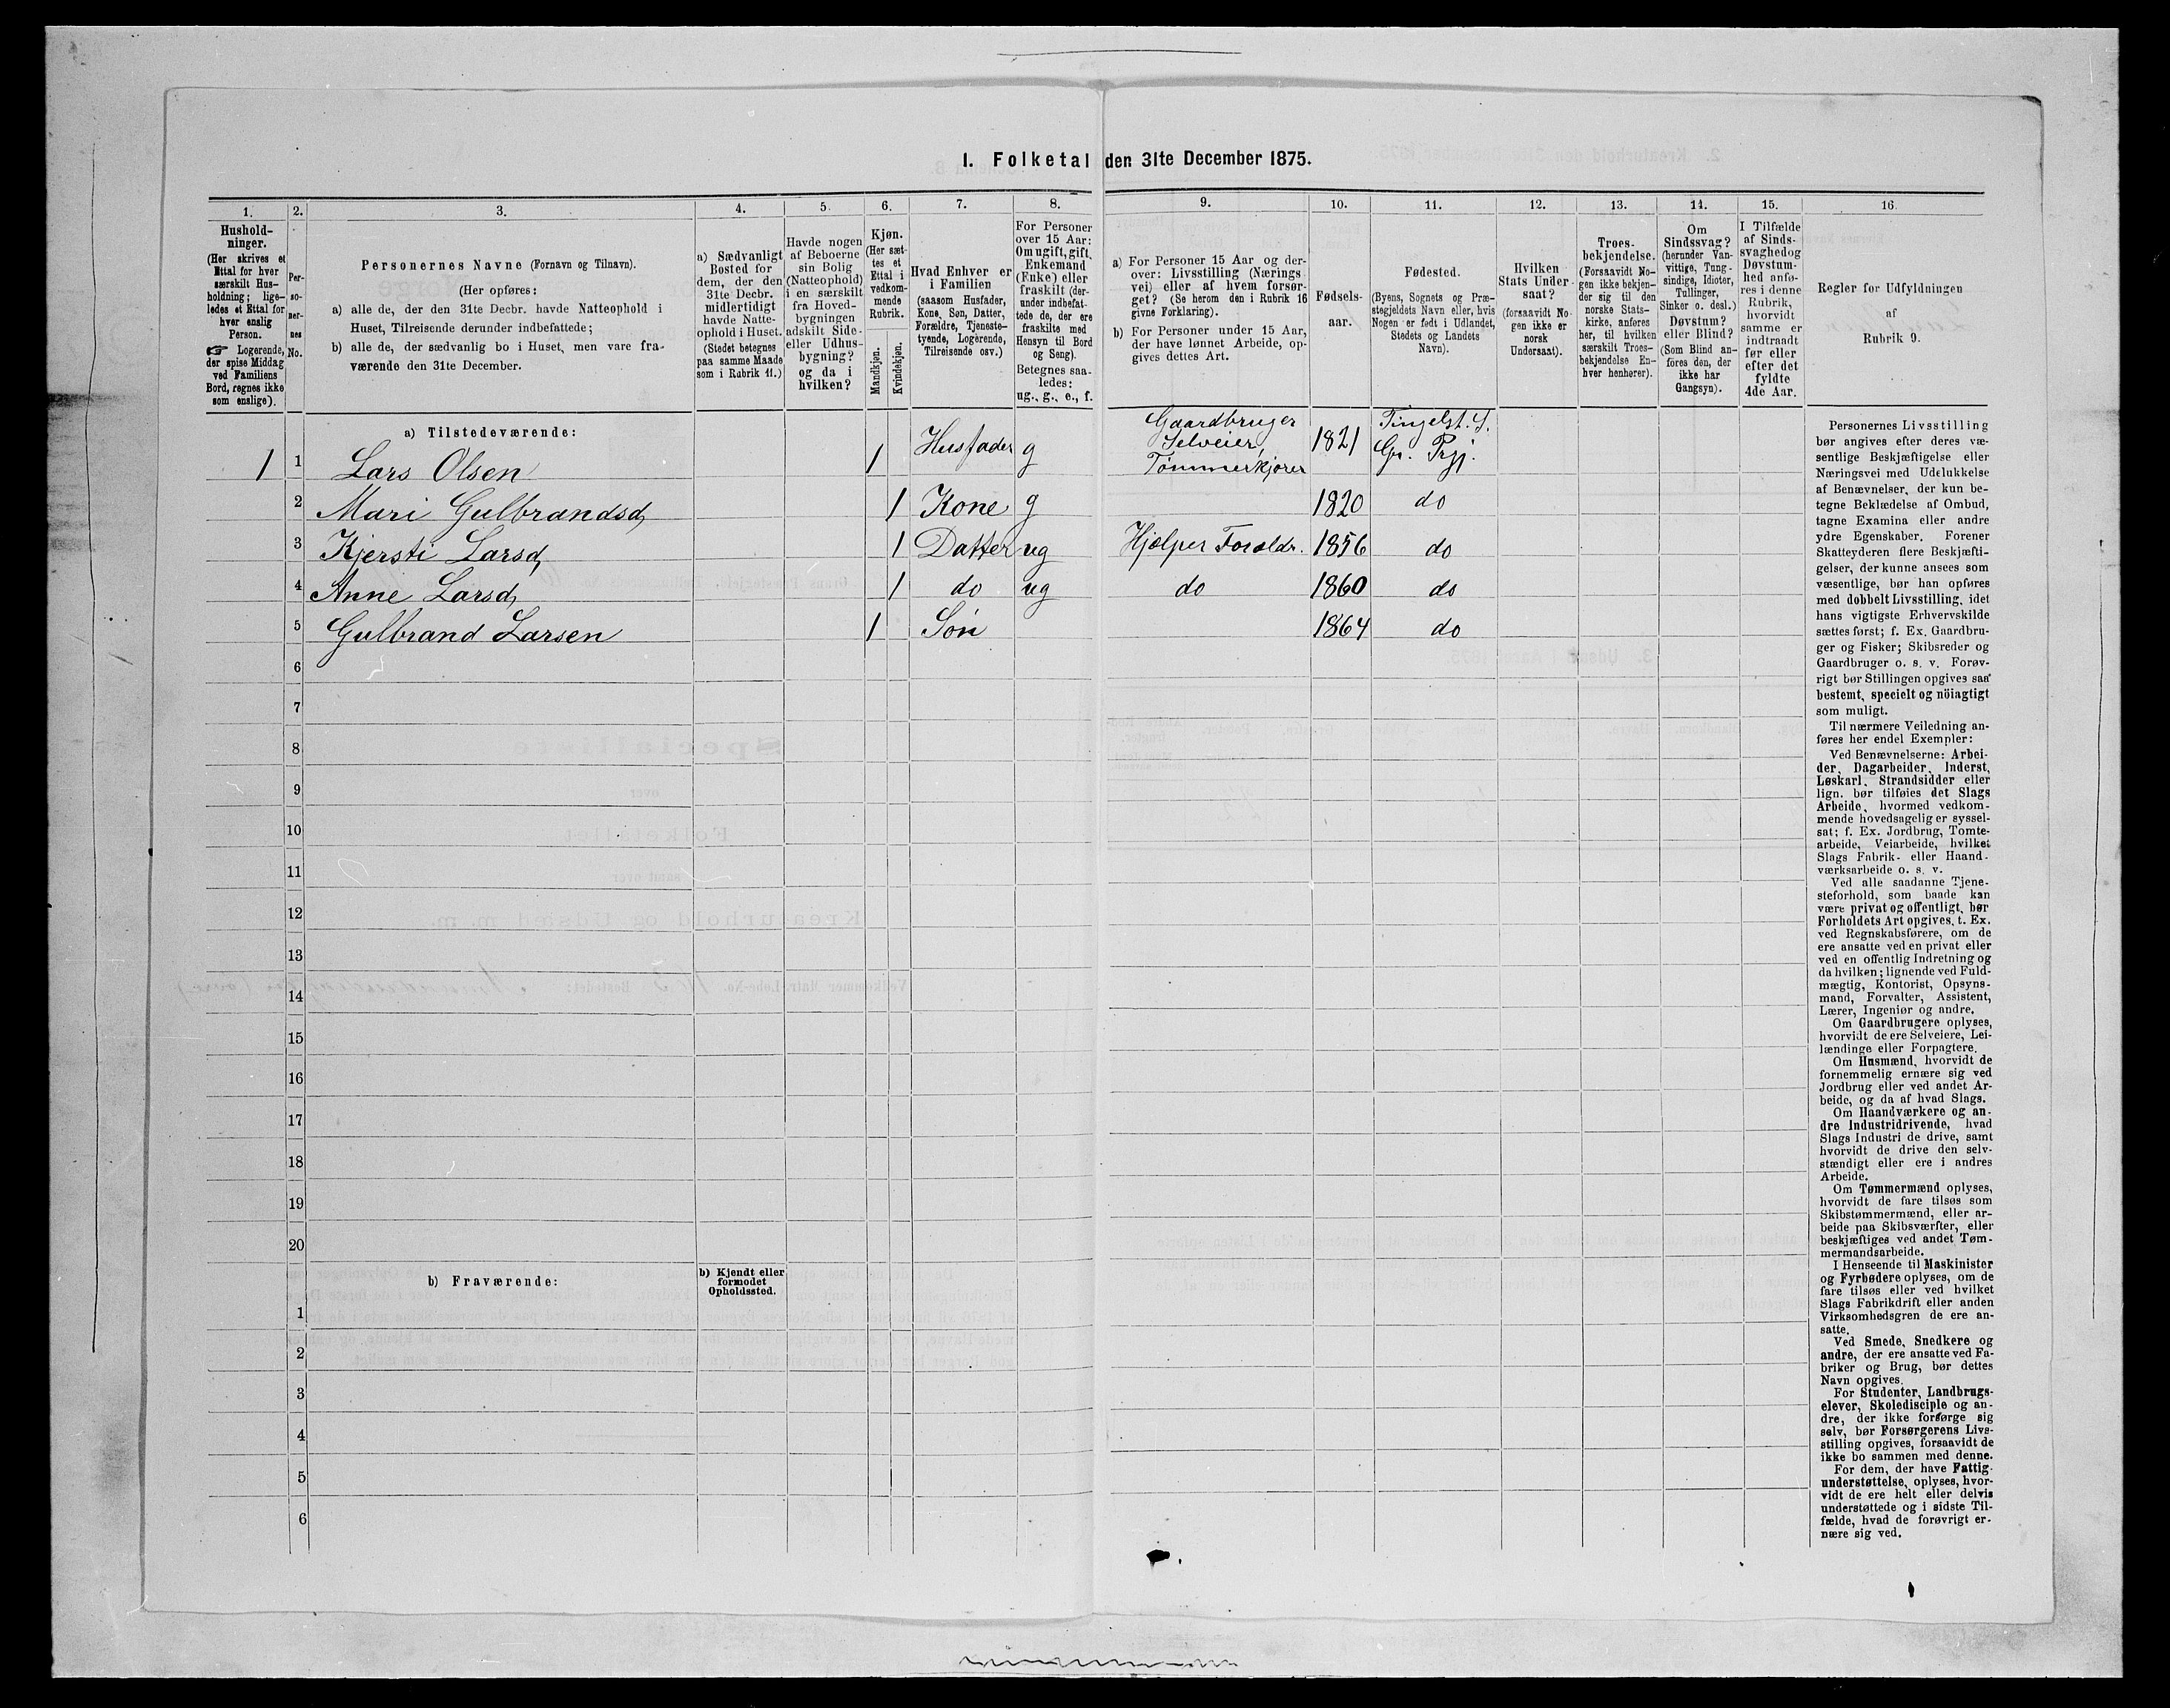 1. Folketal den 31te December 1875.
1. 2. 3. 4. 5. 6. 7. 8. 9. 10. 11. 12. 13. 14. 15. 16.
Hushold-
ninger.
(Her skrives et
Ettal for hver
særskilt Hus-
holdning; lige-
ledes et Ettal for
hver enslig
Person.
☞ Logerende,
der spise Middag
ved Familiens
Bord, regnes ikke
som enslige).
Per-
so-
ner-
nes
No.
Personernes Navne (Fornavn og Tilnavn).
(Her opføres:
a) alle de, der den 31te Decbr. havde Natteophold i
Huset, Tilreisende derunder indbefattede;
b) alle de, der sædvanlig bo i Huset, men vare fra-
værende den 31te December.
a) Sædvanligt
Bosted for
dem, der den
31te Decbr.
midlertidigt
havde Natte-
ophold i Huset.
(Stedet betegnes
paa samme Maade
som i Rubrik 11.)
Havde nogen
af Beboerne
sin Bolig
(Natteophold)
i en særskilt
fra Hoved-
bygningen
adskilt Side-
eller Udhus-
bygning?
og da i
hvilken?
Kjøn.
(Her sæt-
tes et
Ettal i
vedkom-
mende
Rubrik.
Mandkjøn.
Kvindekjøn.
Hvad Enhver er
i Familien
(saasom Husfader,
Kone, Søn, Datter,
Forældre, Tjeneste-
tyende, Logerende,
Tilreisende osv.)
For Personer
over 15 Aar:
Om ugift, gift,
Enkemand
(Enke) eller
fraskilt (der-
under indbefat-
tede de, der ere
fraskilte med
Hensyn til Bord
og Seng).
Betegnes saa-
ledes:
ug., g., e., f.
a) For Personer 15 Aar og der-
over: Livsstilling (Nærings-
vei) eller af hvem forsør-
get? (Se herom den i Rubrik 16
givne Forklaring).
b) For Personer under 15 Aar,
der have lønnet Arbeide, op-
gives dettes Art.
Fødsels-
aar.
Fødested.
(Byens, Sognets og Præ-
stegjeldets Navn eller, hvis
Nogen er født i Udlandet,
Stedets og Landets
Navn).
Hvilken
Stats Under-
saat?
(forsaavidt No-
gen ikke er
norsk
Undersaat).
Troes-
bekjendelse.
(Forsaavidt No-
gen ikke bekjen-
der sig til den
norske Stats-
kirke, anføres
her, til hvilken
særskilt Troes-
bekjendelse En-
hver henhører).
Om
Sindssvag?
(herunder Van-
vittige, Tung-
sindige, Idioter,
Tullinger,
Sinker o. desl.)
Døvstum?
eller Blind?
(Som Blind an-
føres den, der
ikke har
Gangsyn).
I Tilfælde
af Sinds-
svaghedog
Døvstum-
hed anfø-
res i denne
Rubrik,
hvorvidt
samme er
indtraadt
før eller
efter det
fyldte
4de Aar.
Regler for Udfyldningen
af
Rubrik 9.
a) Tilstedeværende:
1 1 Lars Olsen 1 Husfader g Gaardbruger Selveier, Tømmerkjører 1821 Tingelst. S. Gr. Prgj.
2 Mari Gulbrandsd, 1 Kone g 1820 do
3 Kjersti Larsd, 1 Datter ug Hjælper Foræld. 1856 do
4 Anne Larsd, 1 do ug do 1860 do
5 Gulbrand Larsen 1 Søn 1864 do
6
7
8
9
10
11
12
13
14
15
16
17
18
19
20
b) Fraværende:
b) Kjendt eller
formodet
Opholdssted.
1
2
3
4
5
6
Personernes Livsstilling
bør angives efter deres væ-
sentlige Beskjæftigelse eller
Næringsvei med Udelukkelse
af Benævnelser, der kun be-
tegne Beklædelse af Ombud,
tagne Examina eller andre
ydre Egenskaber. Forener
Skatteyderen flere Beskjæfti-
gelser, der kunne ansees som
væsentlige, bør han opføres
med dobbelt Livsstilling, idet
hans vigtigste Erhvervskilde
sættes først; f. Ex. Gaardbru-
ger og Fisker; Skibsreder og
Gaardbruger o. s. v. Forøv-
rigt bør Stillingen opgives saa
bestemt, specielt og nöiagtigt
som muligt.
Til nærmere Veiledning an-
føres her endel Exempler:
Ved Benævnelserne: Arbei-
der, Dagarbeider, Inderst,
Løskarl, Strandsidder eller
lign. bør tilføies det Slags
Arbeide, hvormed vedkom-
mende hovedsagelig er syssel-
sat; f. Ex. Jordbrug, Tomte-
arbeide, Veiarbeide, hvilket
Slags Fabrik- eller Haand-
værksarbeide o. s. v.
Ved alle saadanne Tjene-
steforhold, som baade kan
være privat og offentligt, bør
Forholdets Art opgives, t. Ex.
ved Regnskabsførere, om de
ere ansatte ved en privat eller
ved en offentlig Indretning og
da hvilken; lignende ved Fuld-
mægtig, Kontorist, Opsyns-
mand, Forvalter, Assistent,
Lærer, Ingeniør og andre.
Om Gaardbrugere oplyses,
hvorvidt de ere Selveiere, Lei-
lændinge eller Forpagtere.
Om Husmænd, hvorvidt de
fornemmelig ernære sig ved
Jordbrug eller ved andet Ar-
beide, og da af hvad Slags.
Om Haandværkere og an-
dre Industridrivende, hvad
Slags Industri de drive, samt
hvorvidt de drive den selv-
stændigt eller ere i andres
Arbeide.
Om Tømmermænd oplyses,
hvorvidt de fare tilsøs som
Skibstømmermænd, eller ar-
beide paa Skibsværfter, eller
beskjæftiges ved andet Tøm-
mermandsarbeide.
I Henseende til Maskinister
og Fyrbødere oplyses, om de
fare tilsøs eller ved hvilket
Slags Fabrikdrift eller anden
Virksomhedsgren de ere an-
satte.
Ved Smede, Snedkere og
andre, der ere ansatte ved Fa-
briker og Brug, bør dettes
Navn opgives.
For Studenter, Landbrugs-
elever, Skoledisciple og an-
dre, der ikke forsørge sig
selv, bør Forsørgerens Livs-
stilling opgives, forsaavidt de
ikke bo sammen med denne.
For dem, der have Fattig-
understøttelse, oplyses, hvor-
vidt de ere helt eller delvis
understøttede og i sidste Til-
fælde, hvad de forøvrigt er-
nære sig ved.